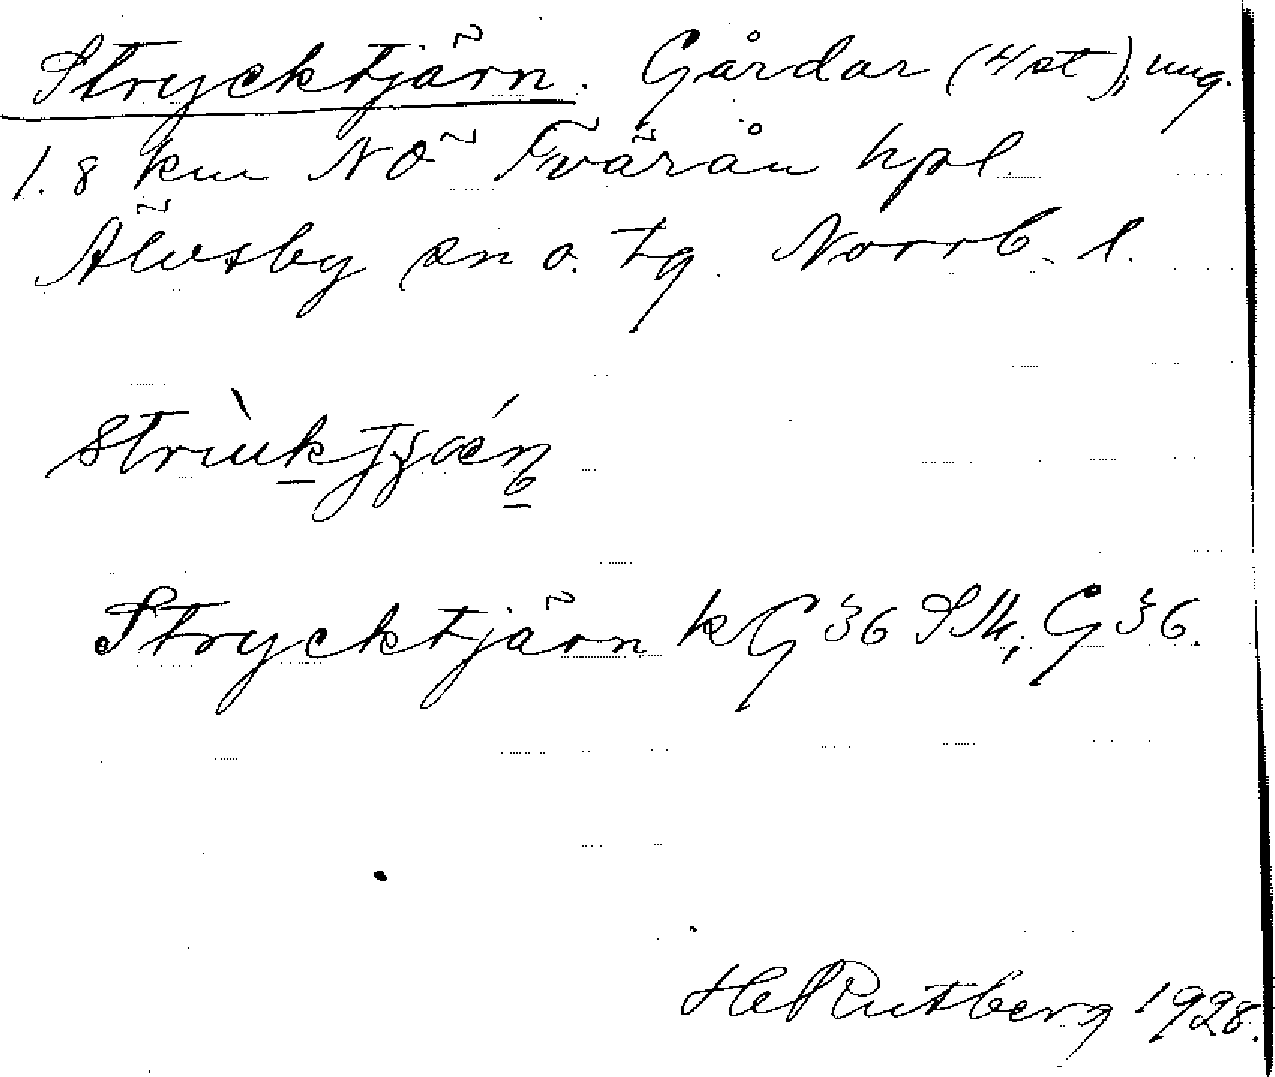 Strycktjärn. Gårdar (4 st), ung.
1.8 km NÖ Tvärån hpl.
Älvsby sn o. tg. Norrb. l.
Strycktjärn kG 36 SJk; G 36.
Rutberg 1928.